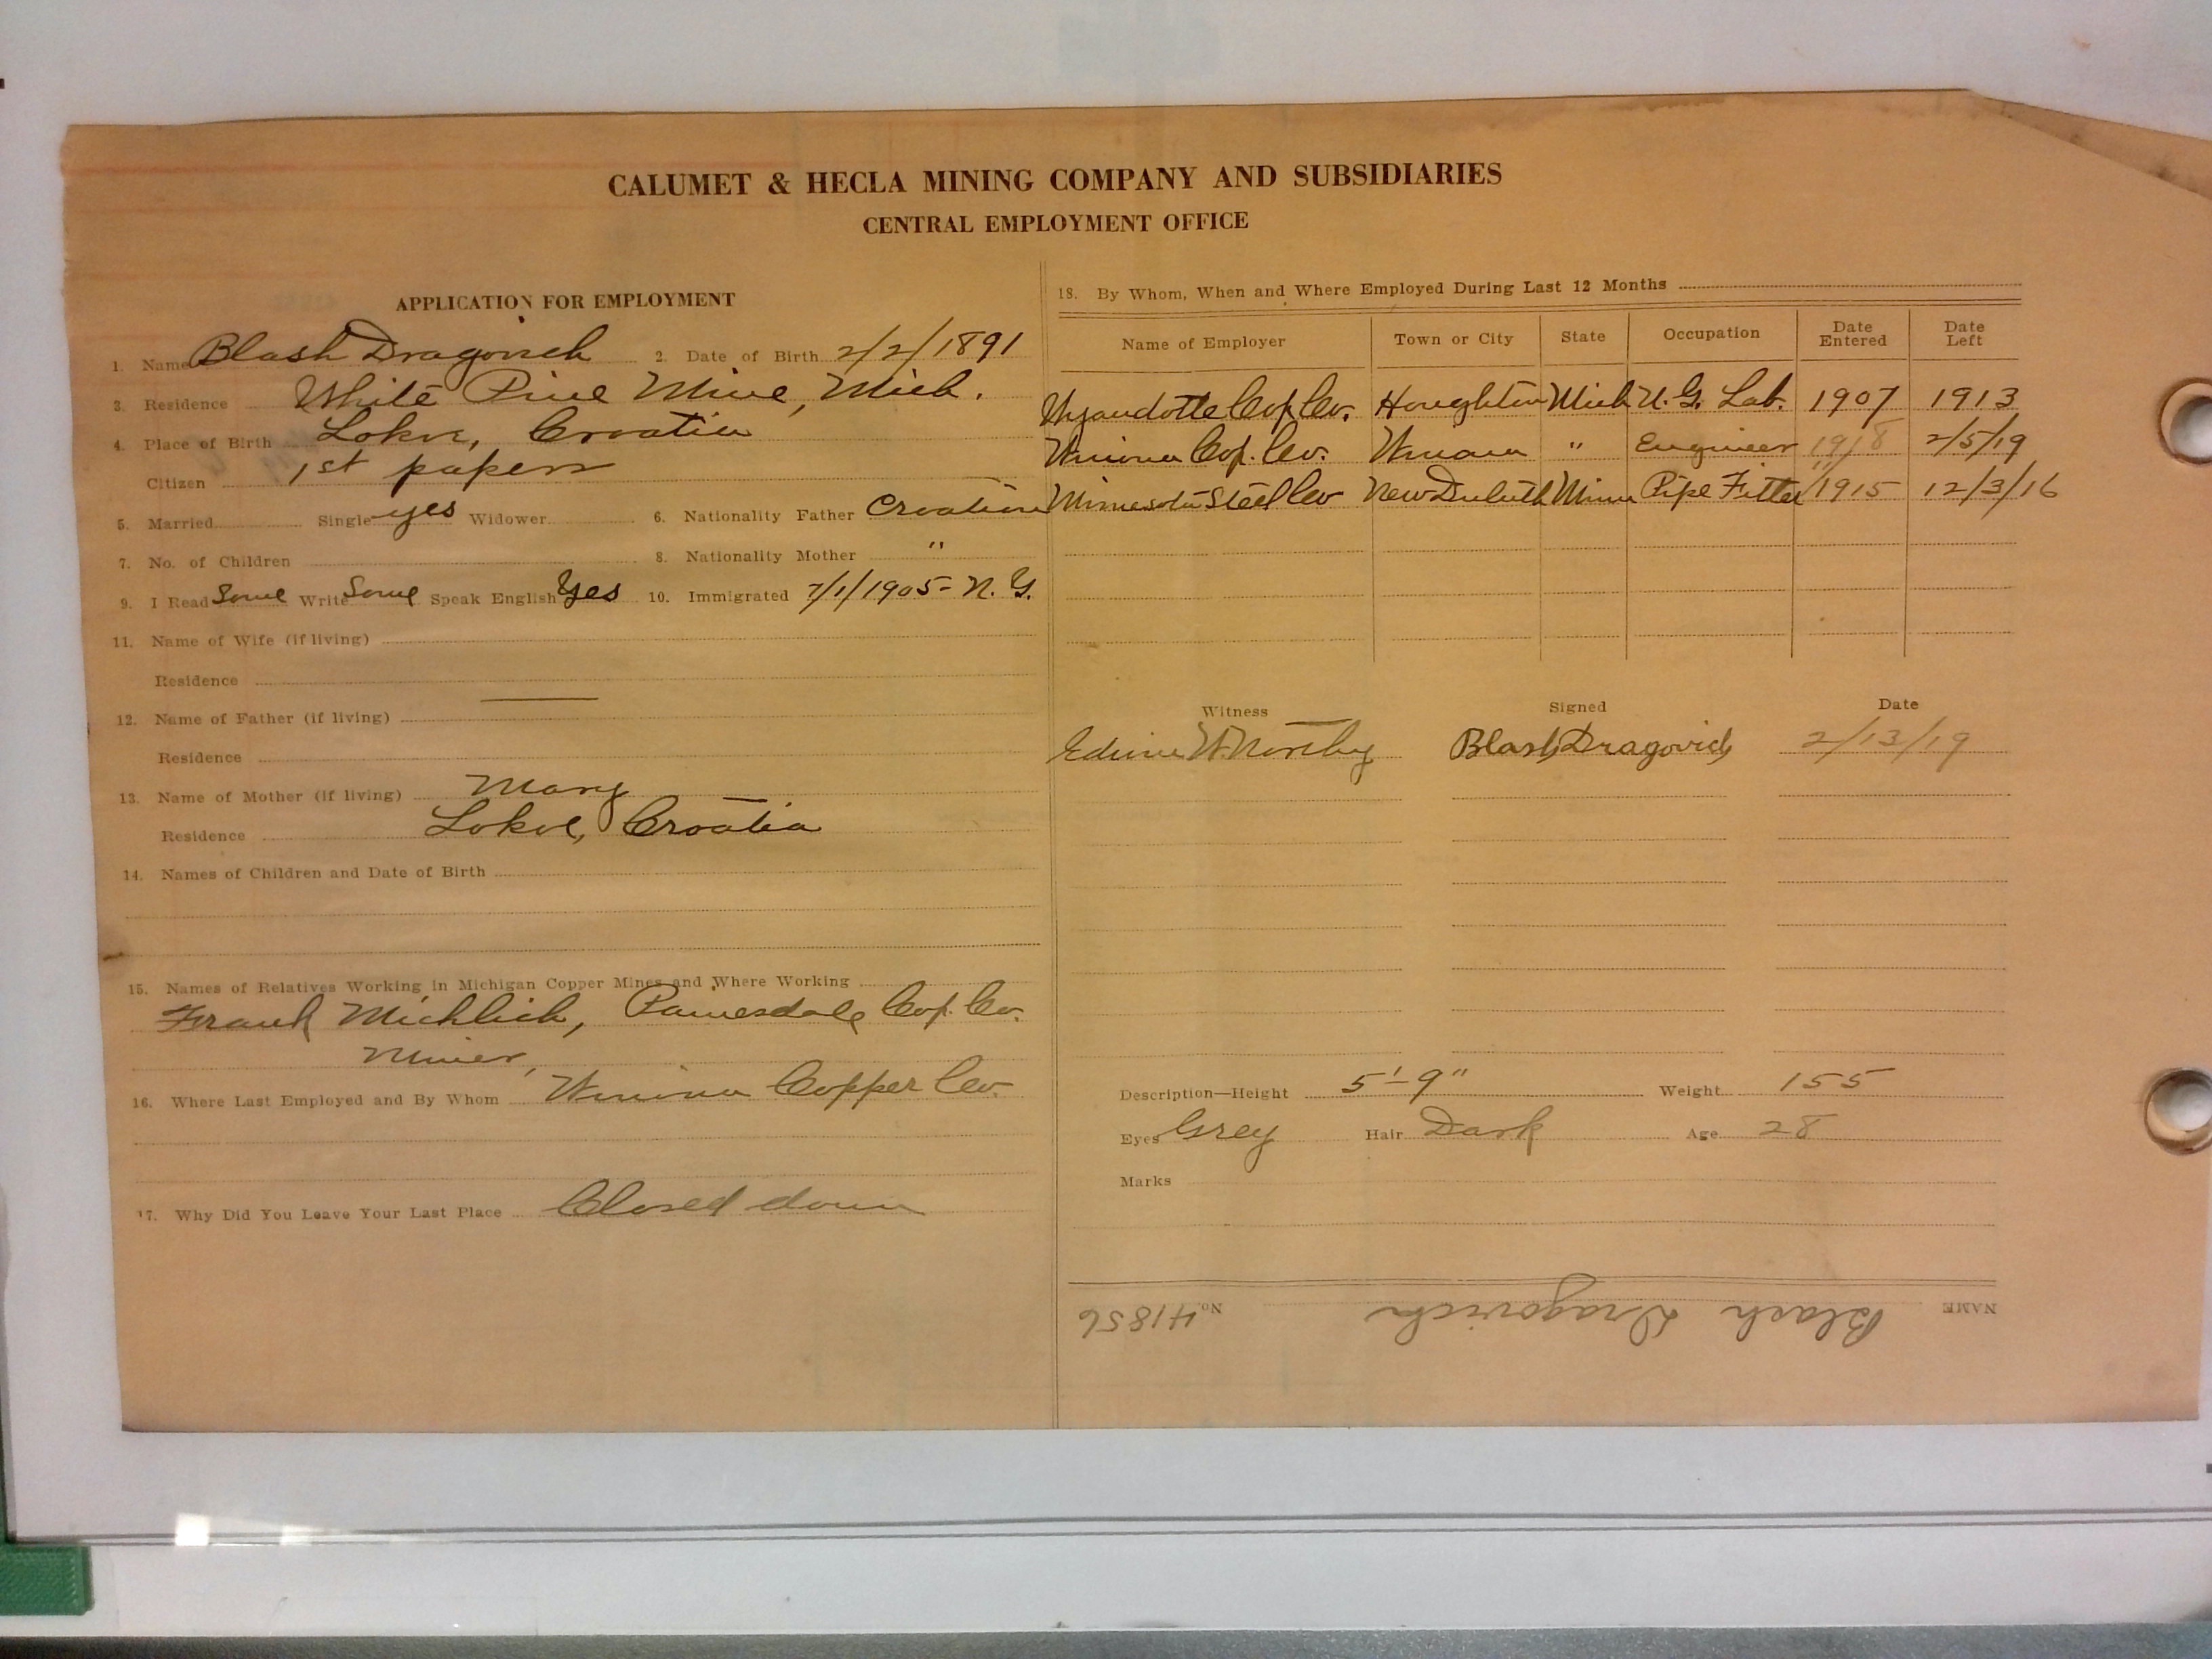 CALUMET & HECLA MINING COMPANY AND SUBSIDIARIES
CENTRAL EMPLOYMENT OFFICE
APPLICATION FOR EMPLOYMENT
1. Name Blash Dragovich 2. Date of Birth 2/2/1891
3. Residence White Pine Mine, Mich.
4. Place of Birth Lokve, Croatia
Citizen 1st papers
5. Married Single yes Widower 6. Nationality Father Croatian
7. No. of Children 8. Nationality Mother "
9. I Read Some Write Some Speak English Yes 10. Immigrated 7/1/1905 - N.Y.
11. Name of Wife (if living)
Residence
12. Name of Father (if living)
Residence
13. Name of Mother (if living) Mary
Residence Lokve, Croatia
14. Names of Children and Date of Birth
15. Names of Relatives Working in Michigan Copper Mines and Where Working
Frank Michlich, Painesdale Cop. Co.
Miner
16. Where Last Employed and By Whom Winona Copper Co.
17. Why Did You Leave Your Last Place Closed down
18. By Whom, When and Where Employed During Last 12 Months
Name of Employer Town or City State Occupation Date Entered Date Left
Wyandotte Cop. Co. Houghton Mich U.G. Lab. 1907 1913
Winona Cop. Co. Winona " Engineer 1918 2/5/19
Minnesota Steel Co New Duluth Minn Pipe Fitter 1915 12/3/16
Witness Signed Date
Edwin W. Blash Dragovich 2/13/19
Description—Height 5'-9" Weight 155
Eyes Grey Hair Dark Age 28
Marks
NAME Blash Dragovich No. 41856